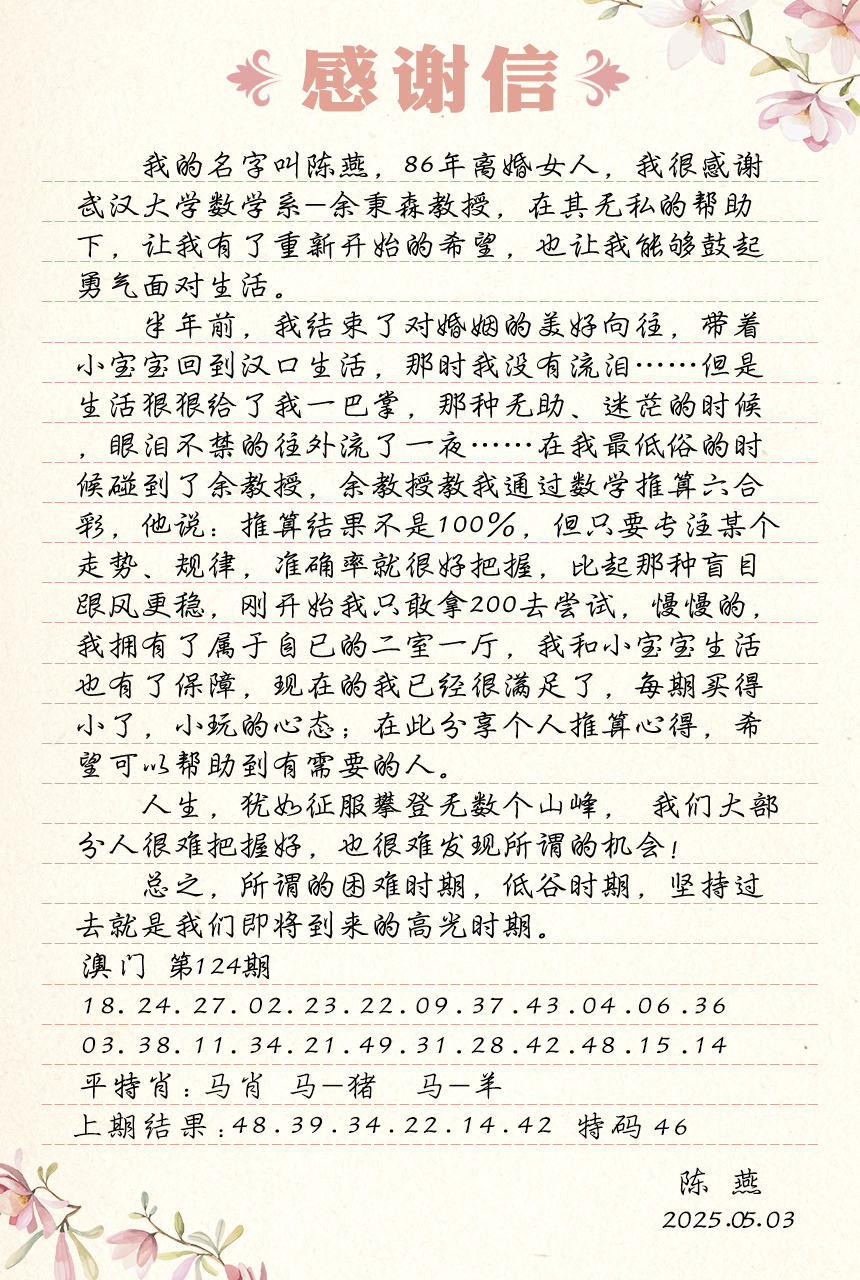 感谢信
我的名字叫陈燕，86年离婚女人，我很感谢
武汉大学数学系—余秉森教授，在其无私的帮助
下，让我有了重新开始的希望，也让我能够鼓起
勇气面对生活。
半年前，我结束了对婚姻的美好向往，带着
小宝宝回到汉口生活，那时我没有流泪……但是
生活狠狠给了我一巴掌，那种无助、迷茫的时候
，眼泪不禁的往外流了一夜……在我最低俗的时
候碰到了余教授，余教授教我通过数学推算六合
彩，他说：推算结果不是100%，但只要专注某个
走势、规律，准确率就很好把握，比起那种盲目
跟风更稳，刚开始我只敢拿200去尝试，慢慢的，
我拥有了属于自已的二室一厅，我和小宝宝生活
也有了保障，现在的我已经很满足了，每期买得
小了，小玩的心态；在此分享个人推算心得，希
望可以帮助到有需要的人。
人生，犹如征服攀登无数个山峰， 我们大部
分人很难把握好，也很难发现所谓的机会！
总之，所谓的困难时期，低谷时期，坚持过
去就是我们即将到来的高光时期。
澳门 第124期
18.24.27.02.23.22.09.37.43.04.06.36
03.38.11.34.21.49.31.28.42.48.15.14
平特肖：马肖 马—猪 马—羊
上期结果：48.39.34.22.14.42 特码 46
陈 燕
2025.05.03